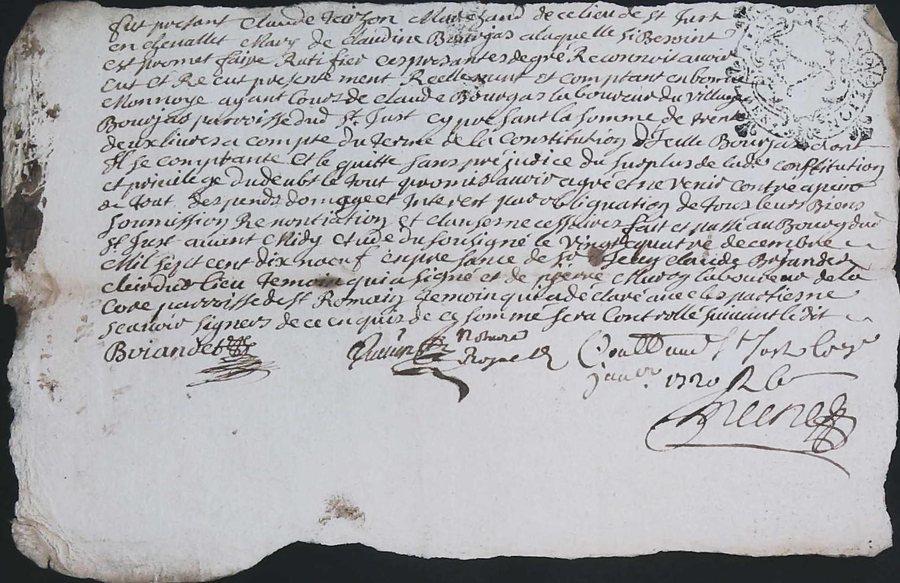 Fut présant Claude Marchand de ce lieu de St Just
en chevallet Mary de Claudine Bourgas a laquelle si Besoint
est promet faire Ratifier ces presantes de gré Reconnoit avoir
Eut et Recut presentement Reellement et comptant en bonne
Monnoye ayant Cours de Claude Bourgas laboureur du Village
Bourgas parroisse dud St Just cy presant la somme de trente
deux livres a compte du terme de la Constitution d Jelle Bourgas dont
Il se comptante et le quitte sans prejudice du surplus de lade Constitution
et privilege dudeubt le tout promis avoir agré et ne venir contre a peyne
de tout despends domages et Interest par obliguation de tous leurs Biens
Soumission Renontiation et clauses necessaires fait et passé au Bourg dud
St Just avant Midy etude du sousigné le vingt quatre decembre
Mil sept cent dix neuf en presance de Sr Claude Briandet
clerc dud lieu temoin qui a signé et de laboureur de la
Core parroisse de St Romain temoin qui a déclaré avec les parties ne
scavoir signer de ce enquis de cy sommé sera Controllé suivant ledit
Briandet Notaire Royal Controllé a St Just le
janver 1720